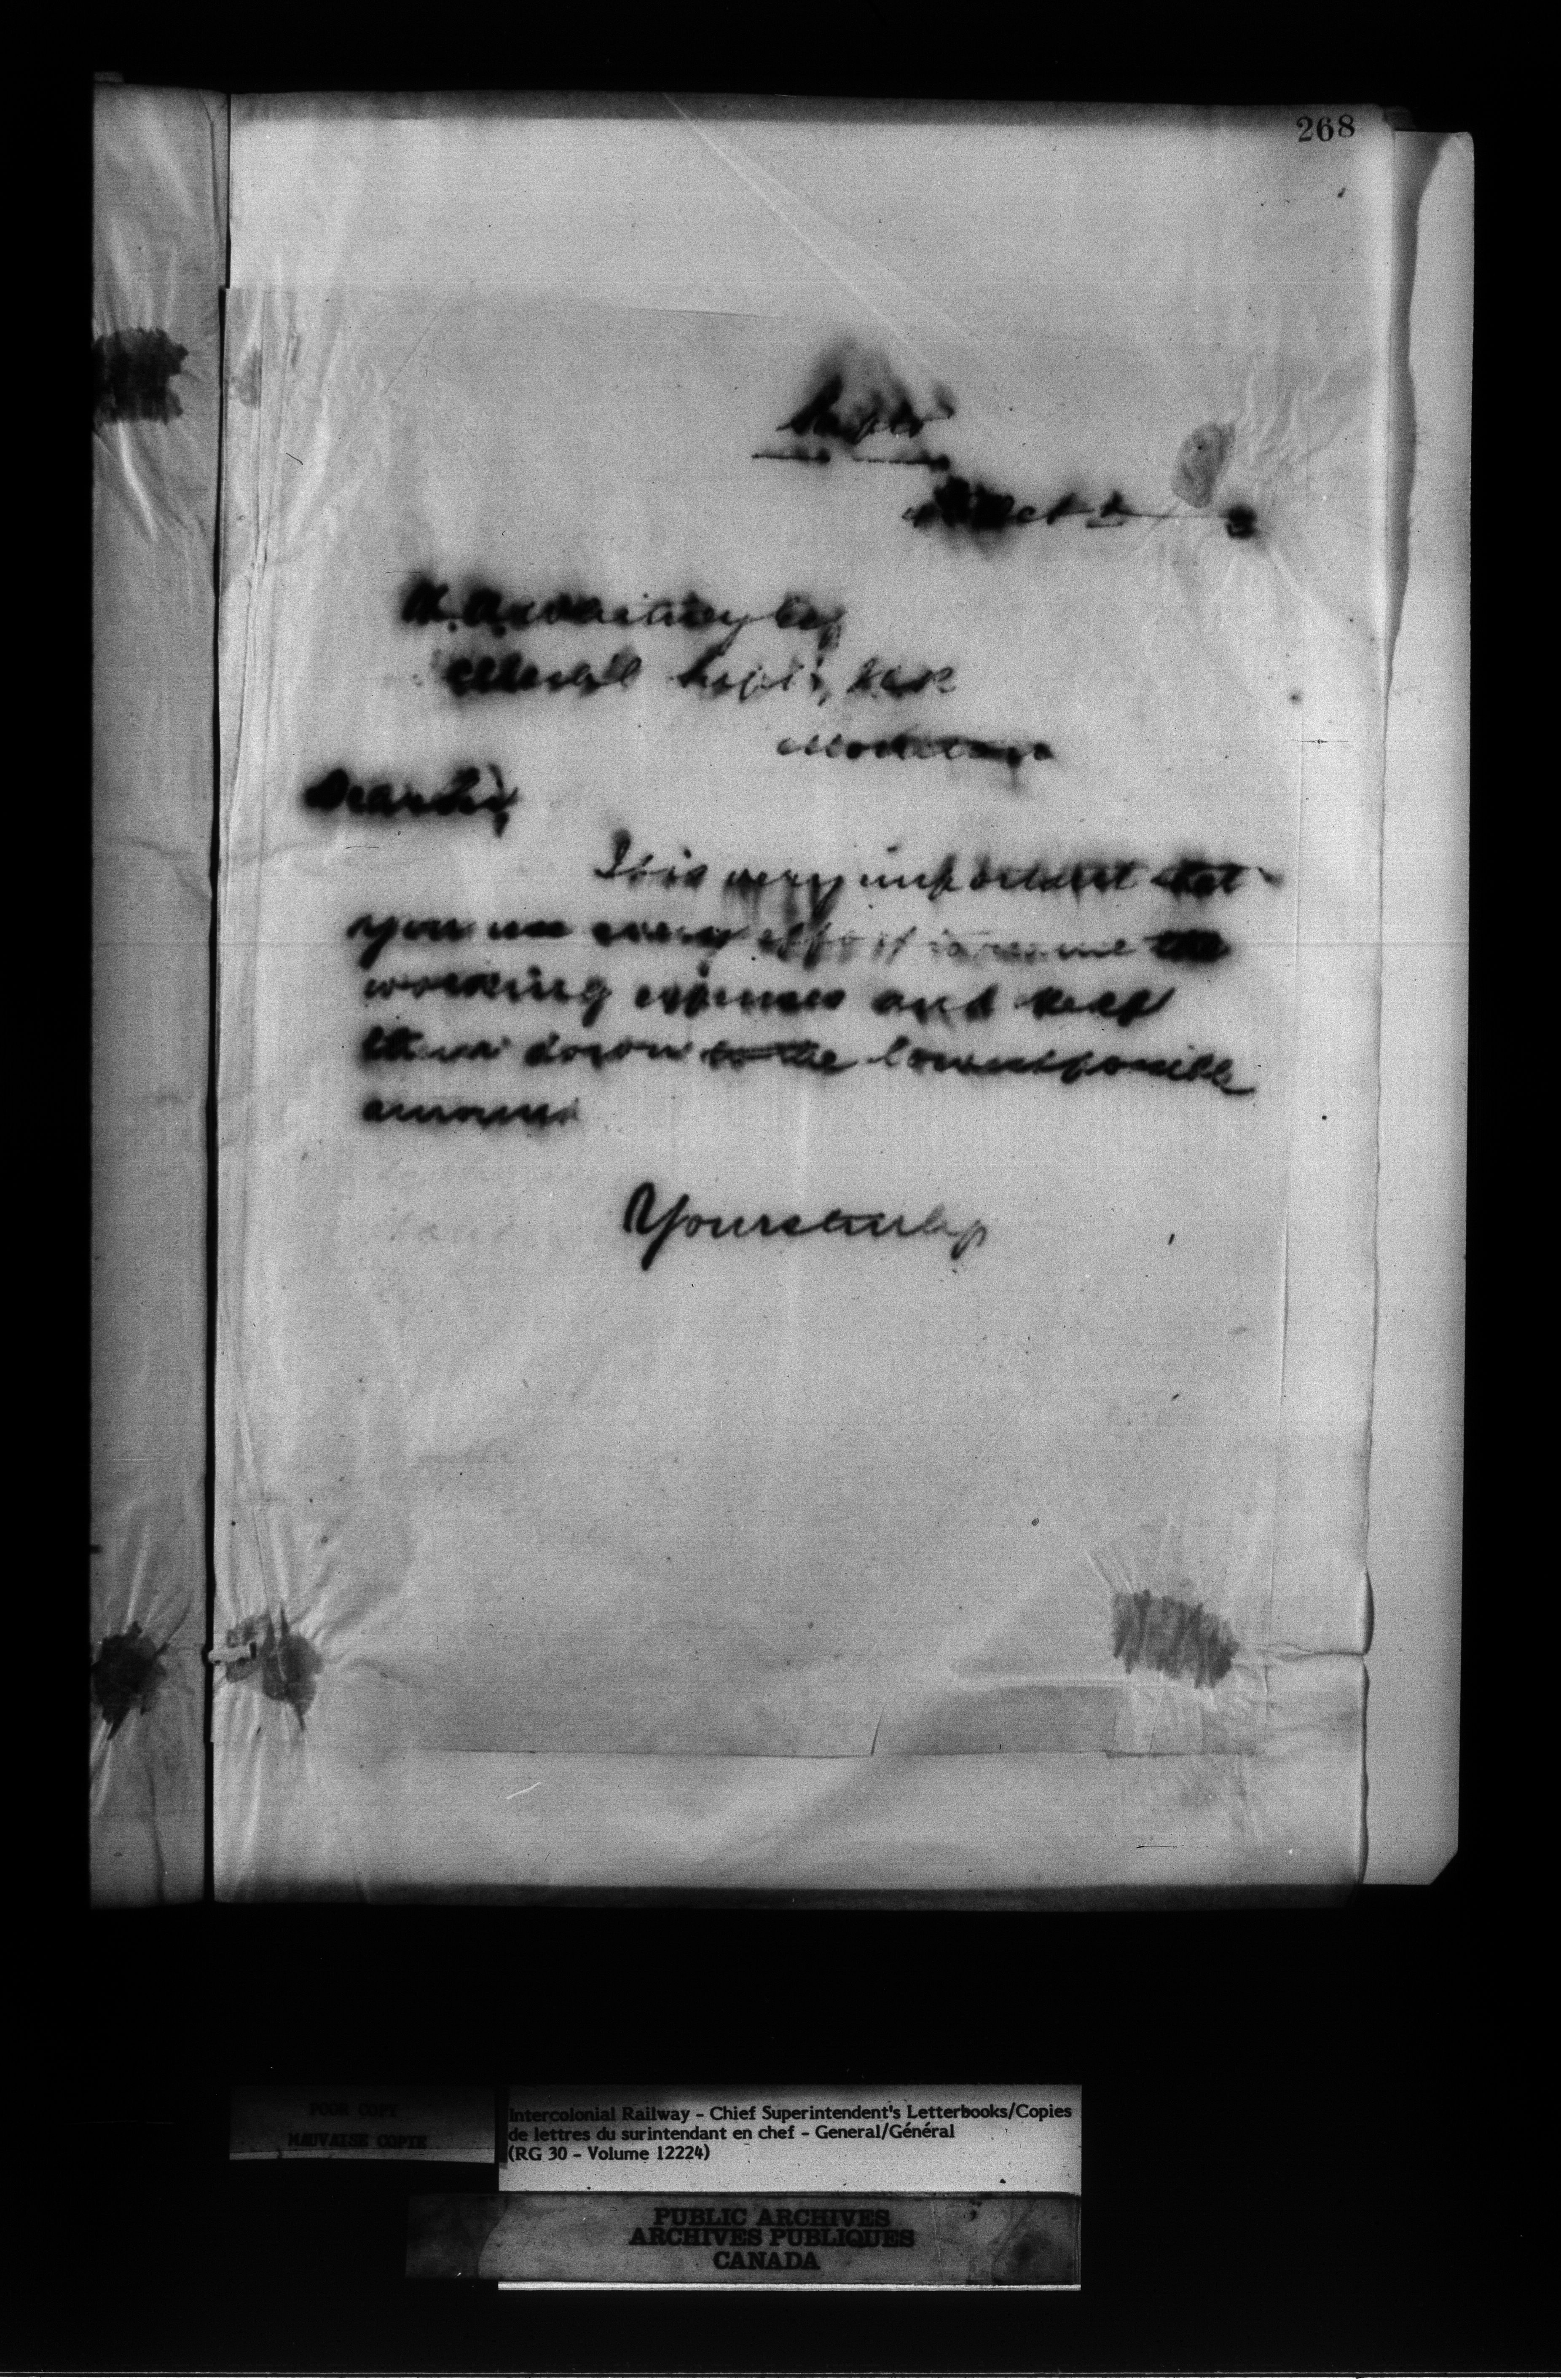 268
Supts
Oct 2
H. A. Whitney Esq
Mechl Supt, ICR
Moncton
Dear Sir,
It is very important that
you use every effort to reduce the
working expenses and keep
them down to the lowest possible
amount
Yours truly
POOR COPY
MAUVAISE COPIE
Intercolonial Railway - Chief Superintendent's Letterbooks/Copies
de lettres du surintendant en chef - General/Général
(RG 30 - Volume 12224)
PUBLIC ARCHIVES
ARCHIVES PUBLIQUES
CANADA